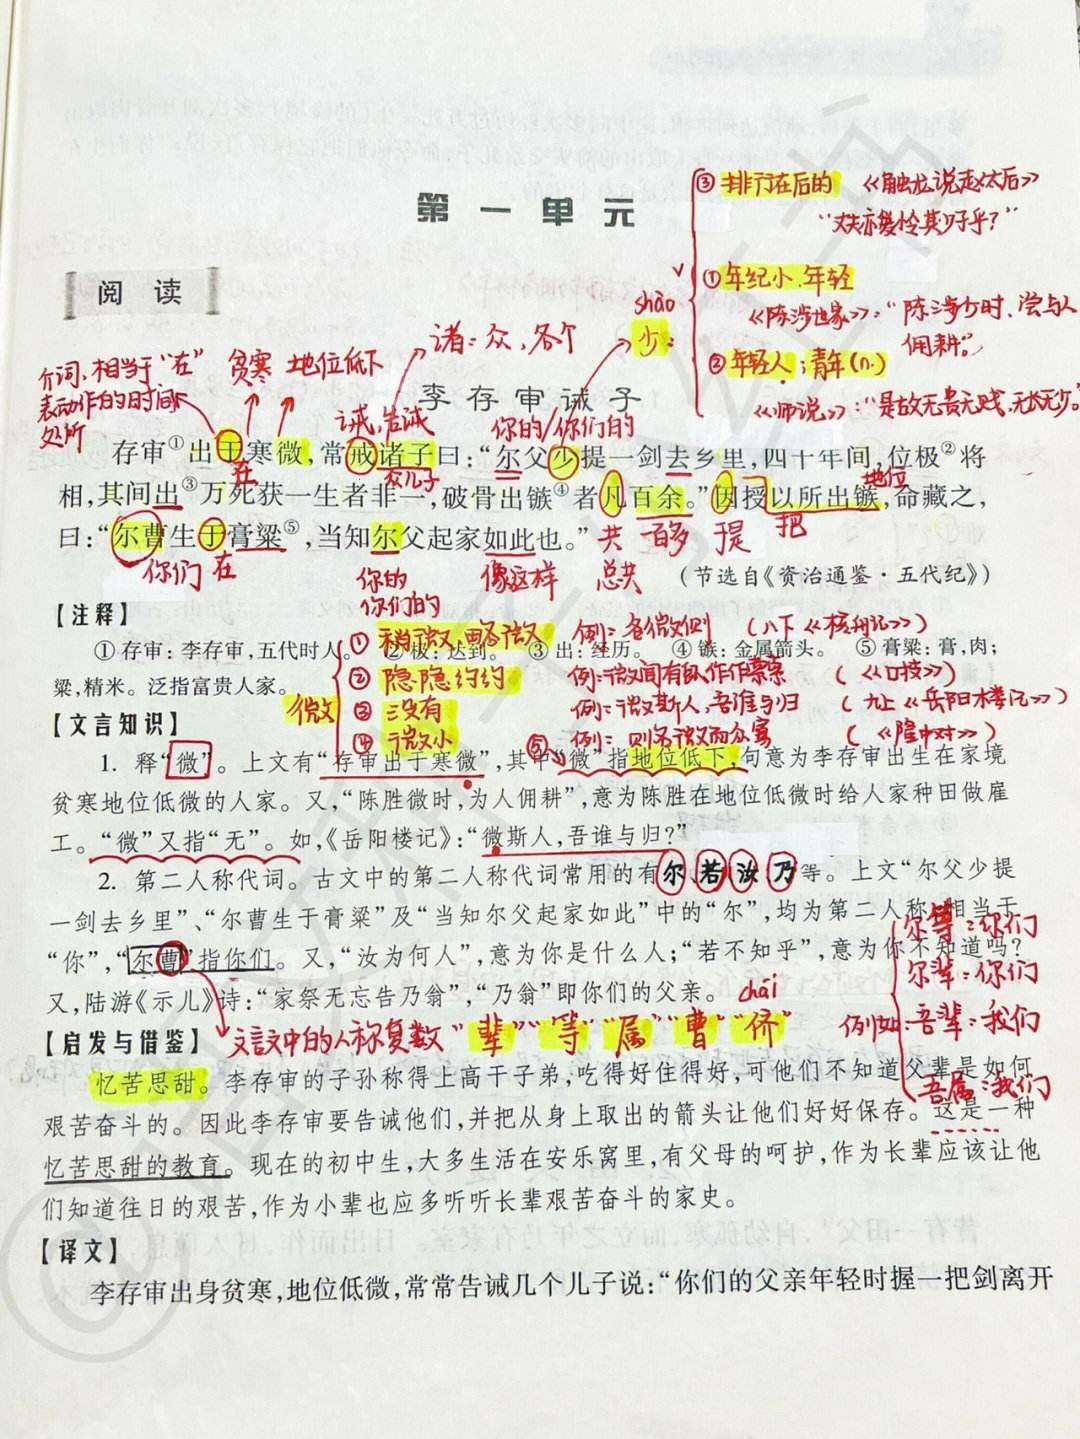 第一单元
③排行在后的 《触龙说赵太后》
"丈夫亦爱怜其少子乎？"
阅读
①年纪小、年轻
shào
《陈涉世家》："陈涉少时，尝与人
佣耕。"
少：
诸：众，各个
②年轻人；青年(n.)
《师说》："是故无贵无贱，无长无少。"
介词，相当于"在"
表动作的时间、
处所
贫寒 地位低下
李存审诫子
诫，告诫
你的/你们的
存审①出于寒微，常戒诸子曰："尔父少提一剑去乡里，四十年间，位极②将
在 众儿子 地位
相，其间出③万死获一生者非一，破骨出镞④者凡百余。"因授以所出镞，命藏之，
曰："尔曹生于膏粱⑤，当知尔父起家如此也。"
共 百多 提 把
你们 在 你的 像这样 总共
你们的
（节选自《资治通鉴·五代纪》）
【注释】
①存审：李存审，五代时人。 ②极：达到。 ③出：经历。 ④镞：金属箭头。 ⑤膏粱：膏，肉；
粱，精米。泛指富贵人家。
微
①稍微、略微 例：各微侧 （八下《核舟记》）
②隐隐约约 （《口技》）
③没有 例：微斯人，吾谁与归 （九上《岳阳楼记》）
④微小 ⑤ 例：则名微而众寡 （《隆中对》）
【文言知识】
1. 释"微"。上文有"存审出于寒微"，其中"微"指地位低下，句意为李存审出生在家境
贫寒地位低微的人家。又，"陈胜微时，为人佣耕"，意为陈胜在地位低微时给人家种田做雇
工。"微"又指"无"。如，《岳阳楼记》："微斯人，吾谁与归？"
2. 第二人称代词。古文中的第二人称代词常用的有尔、若、汝、乃等。上文"尔父少提
一剑去乡里"、"尔曹生于膏粱"及"当知尔父起家如此"中的"尔"，均为第二人称，相当于
"你"，"尔曹"指你们。又，"汝为何人"，意为你是什么人；"若不知乎"，意为你不知道吗？
又，陆游《示儿》诗："家祭无忘告乃翁"，"乃翁"即你们的父亲。
chái
文言文中的人称复数"辈""等""属""曹""侪"
例如：
尔等：你们
尔辈：你们
吾辈：我们
吾属：我们
【启发与借鉴】
忆苦思甜。李存审的子孙称得上高干子弟，吃得好住得好，可他们不知道父辈是如何
艰苦奋斗的。因此李存审要告诫他们，并把从身上取出的箭头让他们好好保存。这是一种
忆苦思甜的教育。现在的初中生，大多生活在安乐窝里，有父母的呵护，作为长辈应该让他
们知道往日的艰苦，作为小辈也应多听听长辈艰苦奋斗的家史。
【译文】
李存审出身贫寒，地位低微，常常告诫几个儿子说："你们的父亲年轻时握一把剑离开